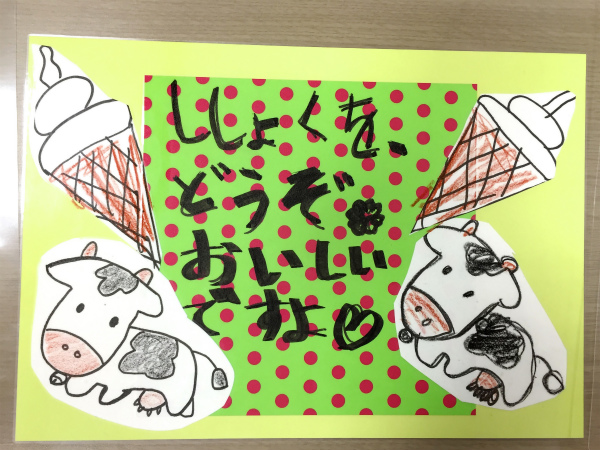 ししょくを、
どうぞ
おいしい
ですよ♡